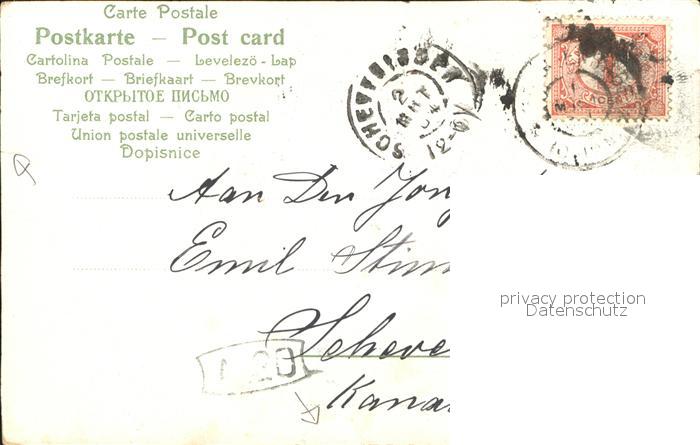 Carte Postale
Postkarte — Post card
Cartolina Postale — Levelezö-Lap
Brefkort — Briefkaart — Brevkort
ОТКРЫТОЕ ПИСЬМО
Tarjeta postal — Carto postal
Union postale universelle
Dopisnice
Aan Den Jong
Emil Stim
Scheve
Kana
privacy protection
Datenschutz